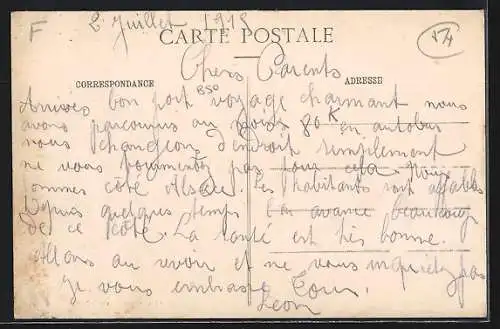 F 2 Juillet 1918
CARTE POSTALE
54
Chers Parents
CORRESPONDANCE
ADRESSE
B50
Arrivés bon port voyage charmant nous
avons parcourus au moins 80K en autobus
nous changeons d'endroit simplement
ne vous tourmentez pas pour cela nous
sommes côté Alsace. Les habitants sont affables
Depuis quelques temps l'on avance beaucoup
de ce côté. La santé est très bonne.
Allons au revoir et ne vous inquiétez pas
Je vous embrasse Tous.
Léon